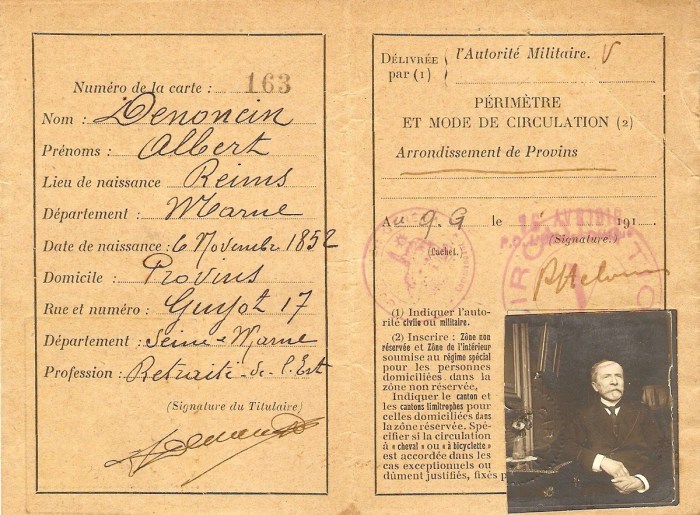 Numéro de la carte : 163
Nom : Denoncin
Prénoms : Albert
Lieu de naissance Reims
Département : Marne
Date de naissance : 6 Novembre 1852
Domicile : Provins
Rue et numéro : Guyot 17
Département : Seine & Marne
Profession : Retraité de l'Est
(Signature du Titulaire)
DÉLIVRÉE par (1) l'Autorité Militaire. V
PÉRIMÈTRE
ET MODE DE CIRCULATION (2)
Arrondissement de Provins
Au G. Q. G. le 191
(Cachet.)
(Signature.)
(1) Indiquer l'auto-
rité civile ou militaire.
(2) Inscrire : Zône non
réservée et Zône de l'intérieur
soumise au régime spécial
pour les personnes
domiciliées dans la
zône non réservée,
Indiquer le canton et
les cantons limitrophes pour
celles domiciliées dans
la zône réservée. Spé-
cifier si la circulation
à « cheval » ou « à bicyclette »
est accordée dans les
cas exceptionnels ou
dûment justifiés, fixés p